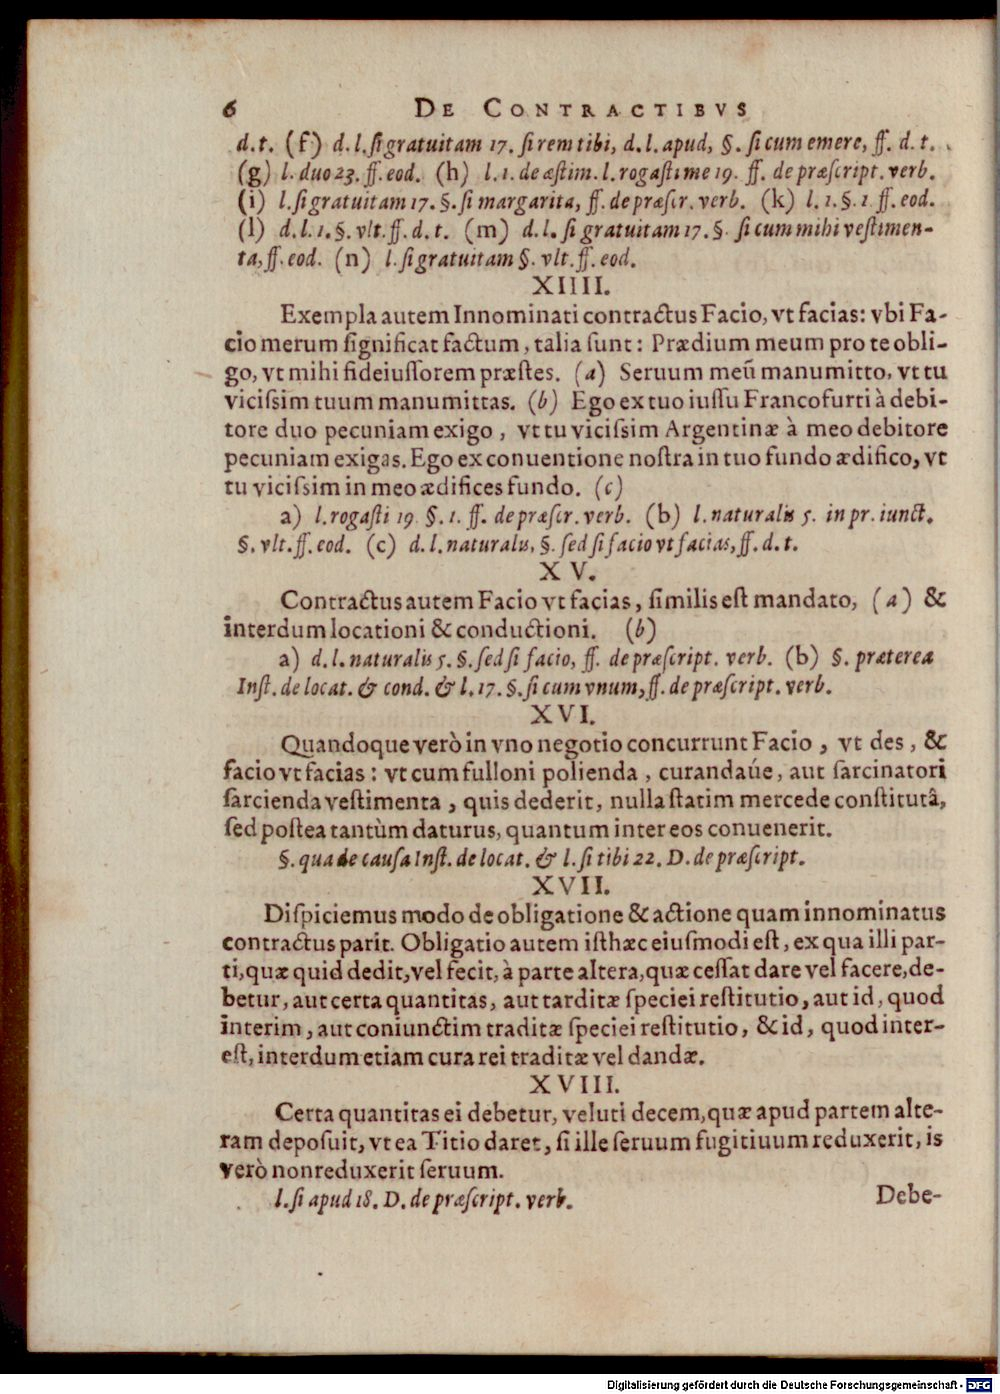 6 DE CONTRACTIBVS
d. t. (f) d. l. ſi gratuitam 17. ſi rem tibi, d. l. apud, §. ſi cum emere, ff. d. t.
(g) l. duo 23. ff. eod. (h) l. 1. de æſtim. l. rogaſti me 19. ff. de præſcript. verb.
(i) l. ſi gratuitam 17. §. ſi margarita, ff. de præſcr. verb. (k) l. 1. §. 1 ff. eod.
(l) d. l. 1. §. vlt. ff. d. t. (m) d. l. ſi gratuitam 17. §. ſi cum mihi veſtimen-
ta, ff. eod. (n) l. ſi gratuitam §. vlt. ff. eod.
XIIII.
Exempla autem Innominati contractus Facio, vt facias: vbi Fa-
cio merum ſignificat factum, talia ſunt: Prædium meum pro te obli-
go, vt mihi fideiuſſorem præſtes. (a) Seruum meũ manumitto, vt tu
viciſsim tuum manumittas. (b) Ego ex tuo iuſſu Francofurti à debi-
tore duo pecuniam exigo, vt tu viciſsim Argentinæ à meo debitore
pecuniam exigas. Ego ex conuentione noſtra in tuo fundo ædifico, vt
tu viciſsim in meo ædifices fundo. (c)
a) l. rogaſti 19. §. 1. ff. de præſcr. verb. (b) l. naturalis 5. in pr. iunct.
§. vlt. ff. eod. (c) d. l. naturalis, §. ſed ſi facio vt facias, ff. d. t.
XV.
Contractus autem Facio vt facias, ſimilis eſt mandato, (a) &
interdum locationi & conductioni. (b)
a) d. l. naturalis 5. §. ſed ſi facio, ff. de præſcript. verb. (b) §. præterea
Inſt. de locat. & cond. & l. 17. §. ſi cum vnum, ff. de præſcript. verb.
XVI.
Quandoque verò in vno negotio concurrunt Facio, vt des, &
facio vt facias: vt cum fulloni polienda, curandaúe, aut ſarcinatori
ſarcienda veſtimenta, quis dederit, nulla ſtatim mercede conſtitutâ,
ſed poſtea tantùm daturus, quantum inter eos conuenerit.
§. qua de cauſa Inſt. de locat. & l. ſi tibi 22. D. de præſcript.
XVII.
Diſpiciemus modo de obligatione & actione quam innominatus
contractus parit. Obligatio autem iſthæc eiuſmodi eſt, ex qua illi par-
ti, quæ quid dedit, vel fecit, à parte altera, quæ ceſſat dare vel facere, de-
betur, aut certa quantitas, aut tarditæ ſpeciei reſtitutio, aut id, quod
interim, aut coniunctim traditæ ſpeciei reſtitutio, & id, quod inter-
eſt, interdum etiam cura rei traditæ vel dandæ.
XVIII.
Certa quantitas ei debetur, veluti decem, quæ apud partem alte-
ram depoſuit, vt ea Titio daret, ſi ille ſeruum fugitiuum reduxerit, is
verò non reduxerit ſeruum.
l. ſi apud 18. D. de præſcript. verb.
Debe-
Digitalisierung gefördert durch die Deutsche Forschungsgemeinschaft - DFG